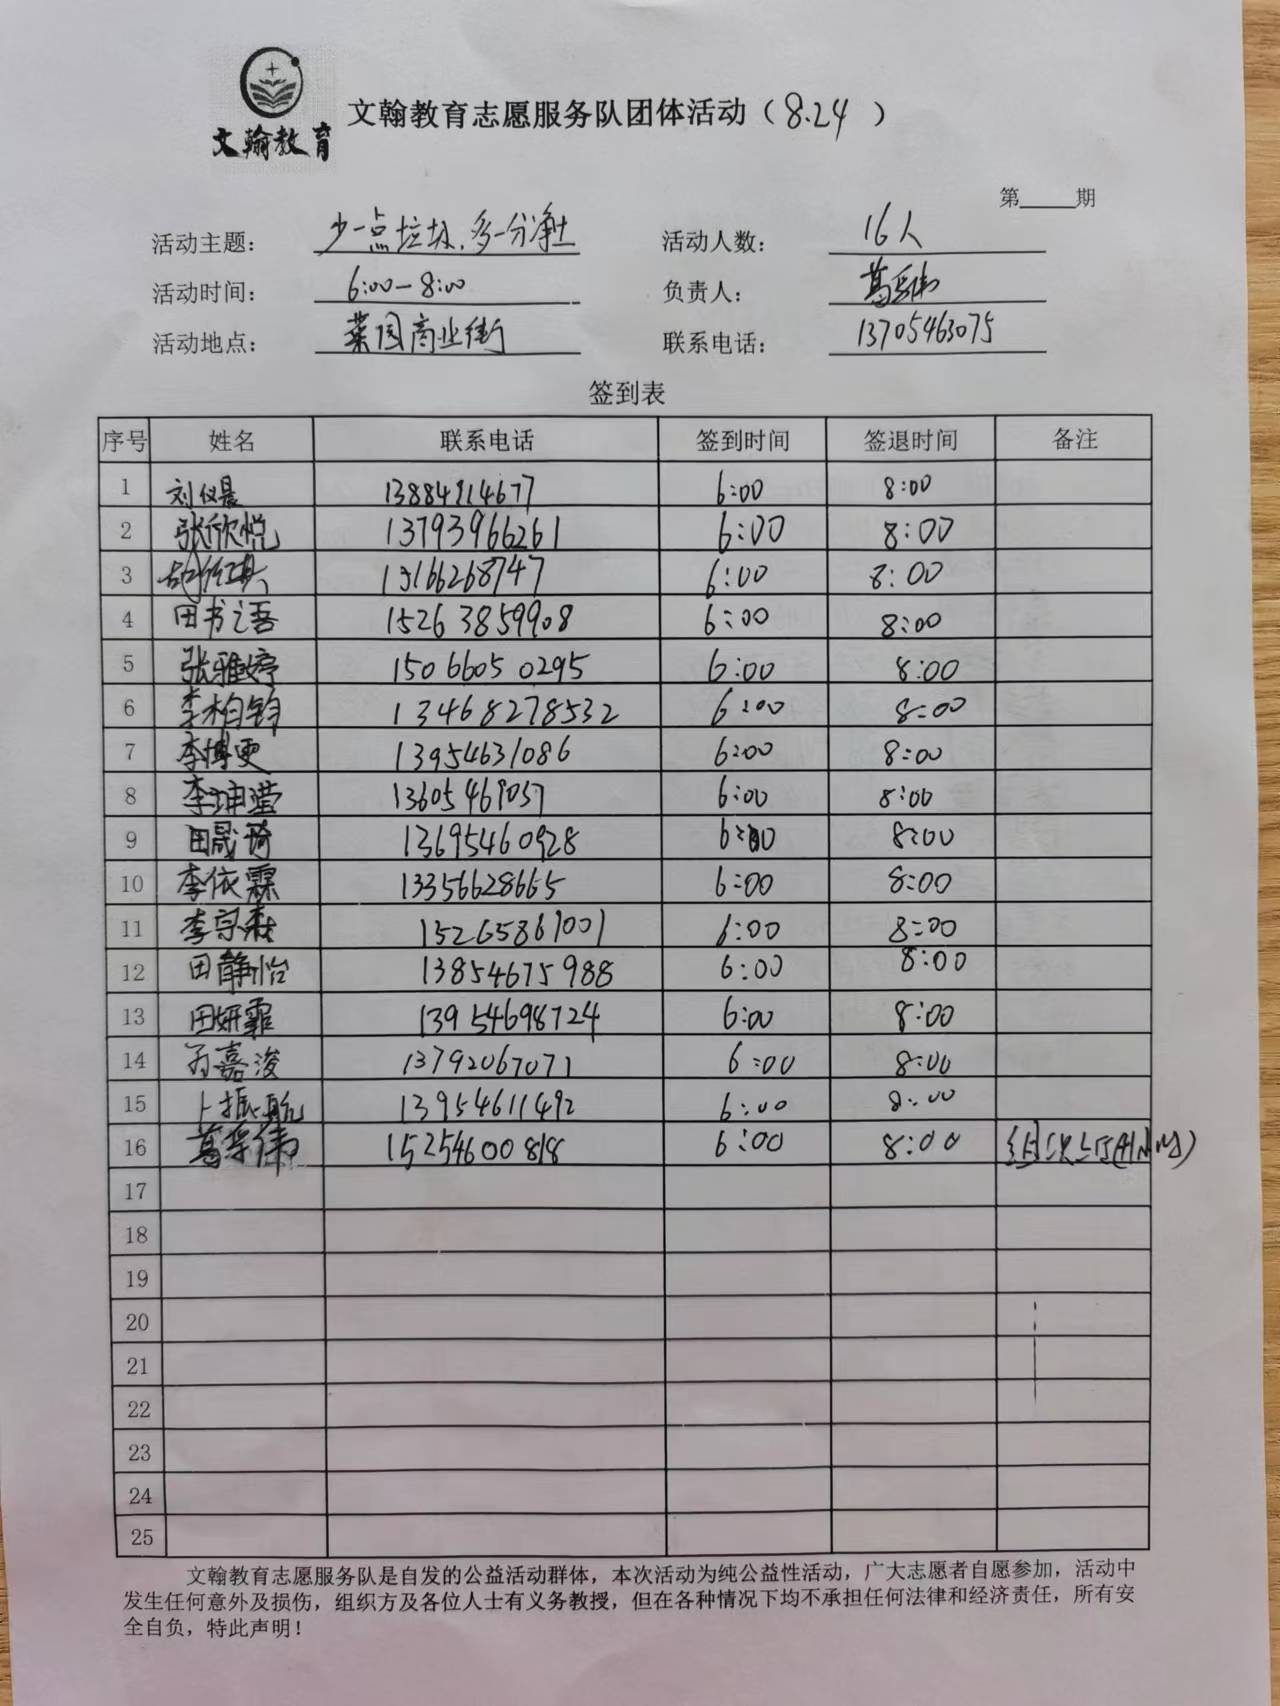 文翰教育
文翰教育志愿服务队团体活动（8.24）
第____期
活动主题： 少一点垃圾、多一分净土 活动人数： 16人
活动时间： 6:00-8:00 负责人： 葛
活动地点： 菜园商业街 联系电话： 13705463075
签到表
序号 姓名 联系电话 签到时间 签退时间 备注
1 刘仪晨 13884914677 6:00 8:00
2 张欣悦 13793966261 6:00 8:00
3 15166268747 6:00 8:00
4 田书语 15263859908 6:00 8:00
5 张雅婷 15066050295 6:00 8:00
6 李柏钧 13468278532 6:00 8:00
7 李博更 13954631086 6:00 8:00
8 李珅滢 13605469057 6:00 8:00
9 田晟琦 13695460928 6:00 8:00
10 李依霖 13356628665 6:00 8:00
11 李宗 15265861001 6:00 8:00
12 田静怡 13854675988 6:00 8:00
13 田妍霏 13954698724 6:00 8:00
14 嘉浚 13792067071 6:00 8:00
15 卜振航 13954611492 6:00 8:00
16 葛 15254600818 6:00 8:00
17
18
19
20
21
22
23
24
25
文翰教育志愿服务队是自发的公益活动群体，本次活动为纯公益性活动，广大志愿者自愿参加，活动中
发生任何意外及损伤，组织方及各位人士有义务教授，但在各种情况下均不承担任何法律和经济责任，所有安
全自负，特此声明！